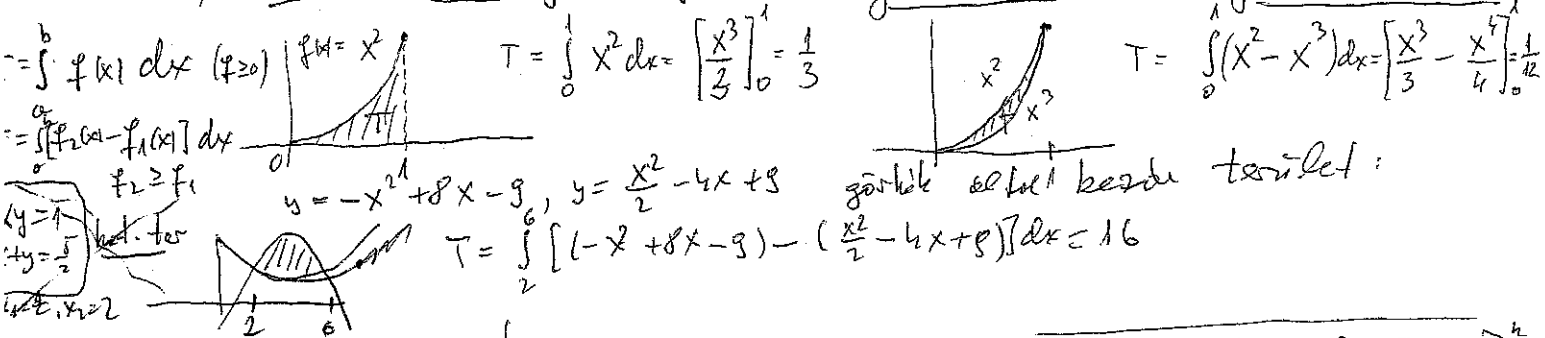 = ∫_a^b f(x) dx (f≥0)
f(x) = x²
T = ∫_0^1 x² dx = [x³/3]_0^1 = 1/3
x²
x³
T = ∫_0^1 (x² - x³) dx = [x³/3 - x⁴/4]_0^1 = 1/12
= ∫_a^b [f₂(x) - f₁(x)] dx
f₂ ≥ f₁
0
1
y = -x² + 8x - 9, y = x²/2 - 4x + 9 görbék által bezárt terület:
xy = 1
x+y = 5/2
T = ∫_2^6 [(-x² + 8x - 9) - (x²/2 - 4x + 9)] dx = 16
x₂=2
2
6